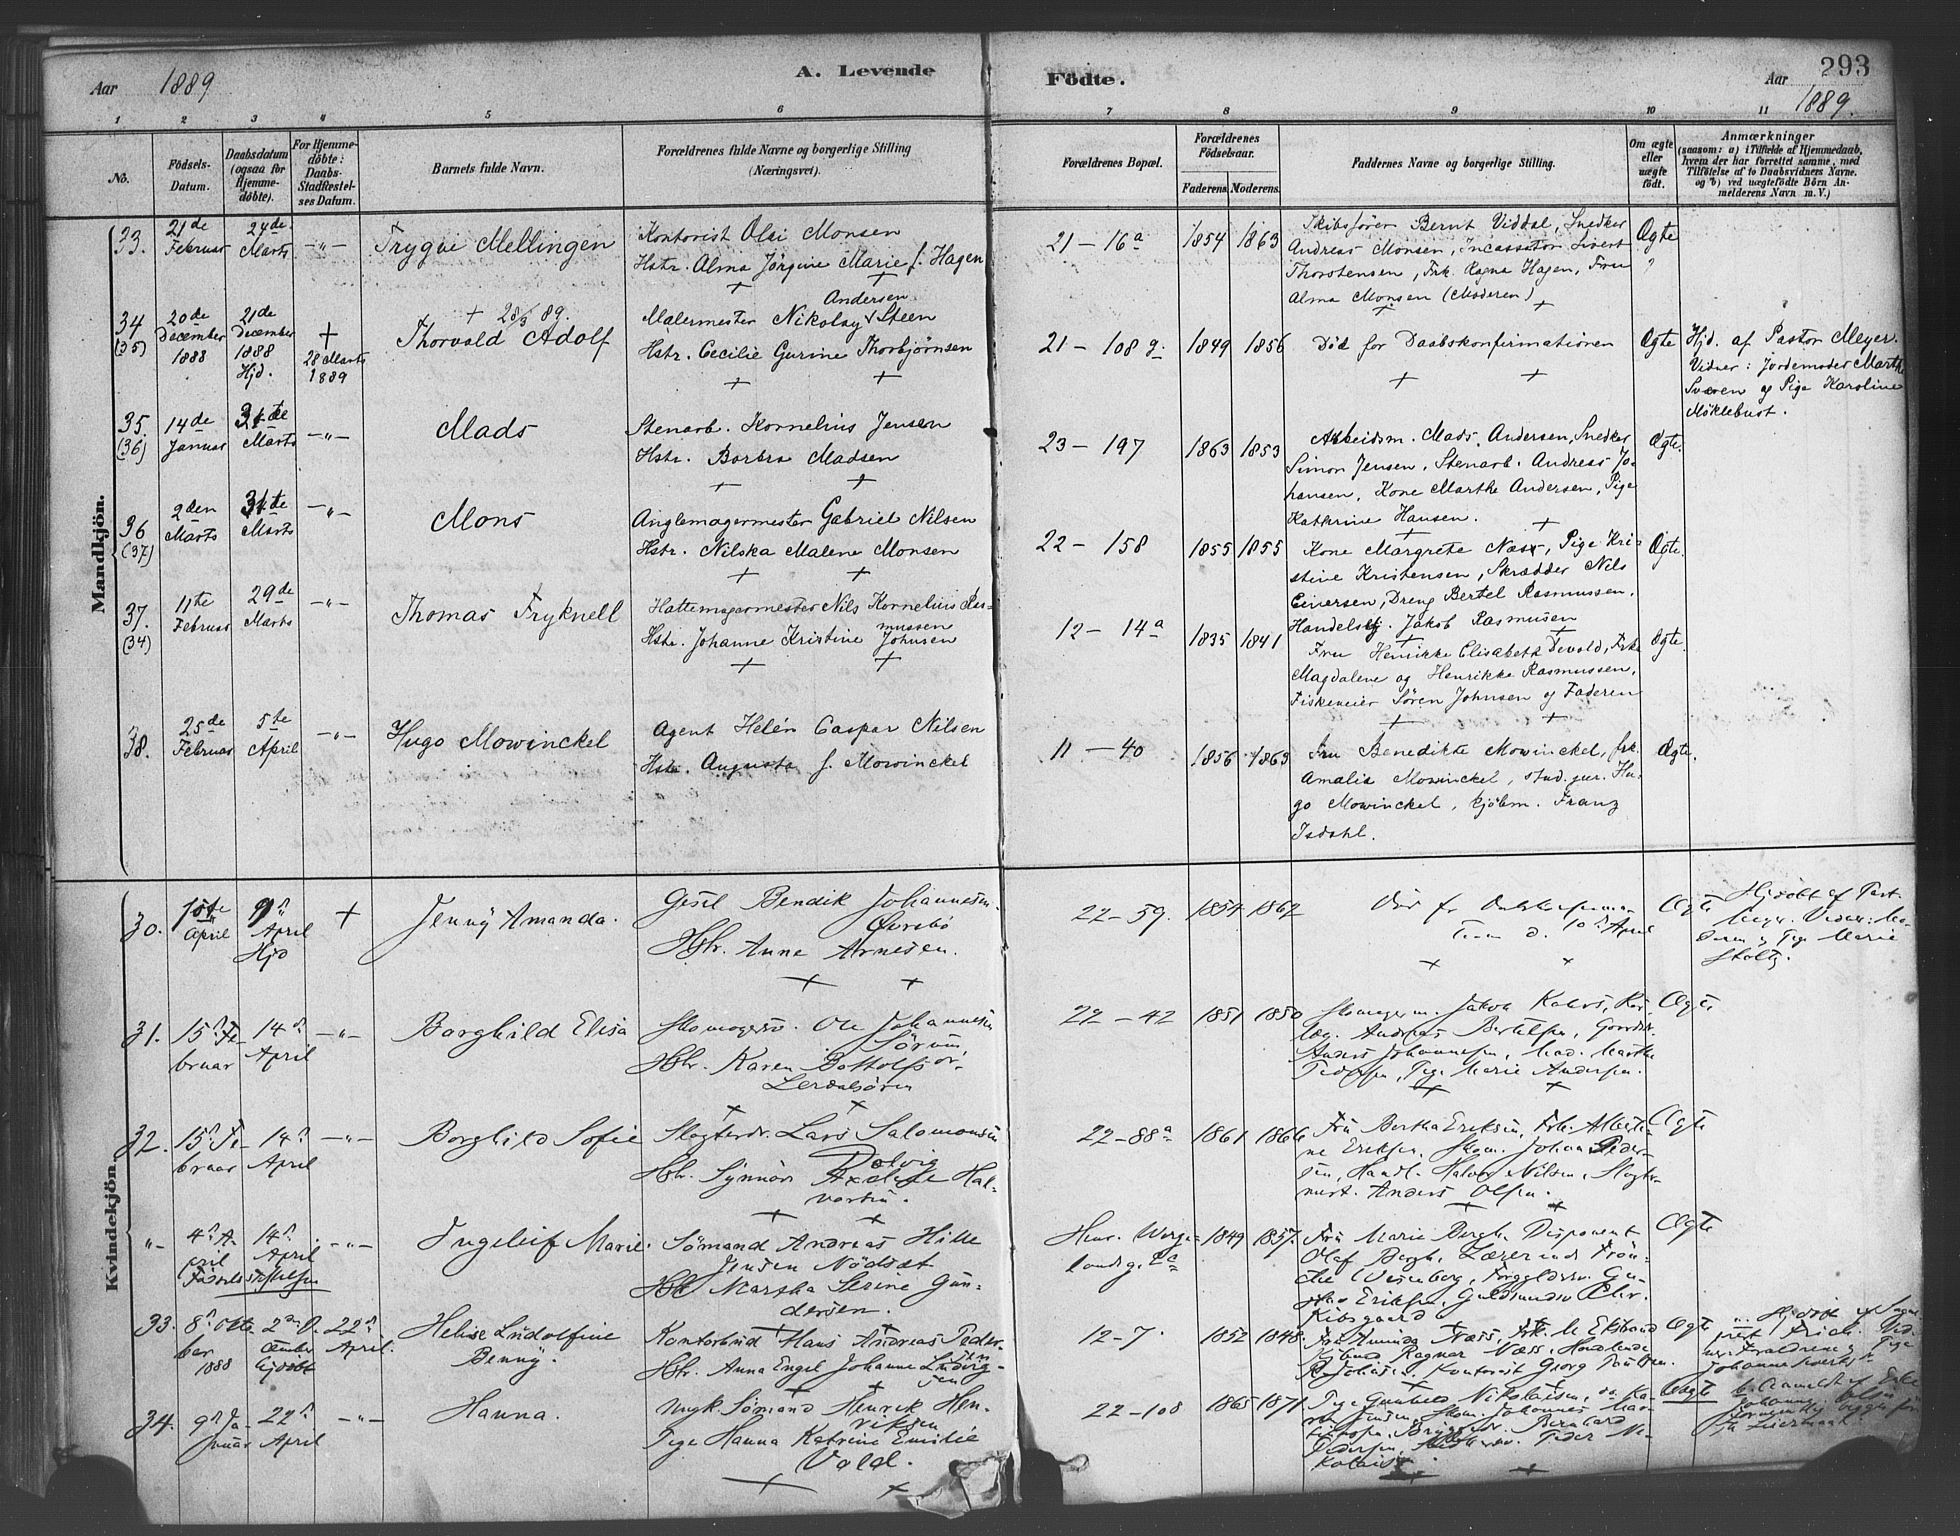 293
Aar 1889
A. Levende
Födte.
Aar 1889.
1 2 3 4 5 6 7 8 9 10 11
No.
Födsels-
Datum.
Daabsdatum
(ogsaa for
Hjemme-
döbte).
For Hjemme-
döbte:
Daabs-
Stadfæstel-
ses Datum.
Barnets fulde Navn.
Forældrenes fulde Navne og borgerlige Stilling
(Næringsvei).
Forældrenes Bopæl.
Forældrenes
Födselsaar.
Faderens. Moderens.
Faddernes Navne og borgerlige Stilling.
Om ægte
eller
uægte
födt.
Anmærkninger
(saasom: a) i Tilfælde af Hjemmedaab,
hvem der har forrettet samme, med
Tilföielse af to Daabsvidners Navne.
og b) ved uægtefödte Börn An-
melderens Navn m. V.)
Mandkjön.
33.
21de
Februar
24de
Marts
-"-
Trygve Mellingen
Kontorist Olai Monsen
Hstr. Alma Jörgine Marie f. Hagen
21 - 16a
1854 1863
Skibsförer Bernt Viddal, Snedker
Andreas Monsen, Incassator Sivert
Thorstensen, Frk. Ragna Hagen, Fru
Alma Monsen (Moderen)
Ægte
34
(35)
20de
December
1888
21de
December
1888
Hjd.
+
28 Marts
1889
+ 28/3 89.
Thorvald Adolf
Andersen
Malermester Nikolay Steen
Hstr. Cecilie Gurine Thorbjörnsen
21 - 108 g.
1849 1856
Död för Daabskonfirmationen
Ægte
Hjd. af Pastor Meyer.
Vidner: Jordemoder Marthe
Sværen og Pige Karoline
Möklebust.
35.
(36)
14de
Januar
31te
Marts
-"-
Mads
Stenarb. Kornelius Jensen
Hstr. Barbra Madsen
23 - 197
1863 1853
Arbeidsm. Mads Andersen, Snedker
Simon Jensen, Stenarb. Andreas Jo-
hansen, Kone Marthe Andersen, Pige
Kathrine Hansen.
Ægte.
36
(37)
2den
Marts
31te
Marts
-"-
Mons
Anglemagermester Gabriel Nilsen
Hstr. Nilska Malene Monsen
22 - 158
1855 1855
Kone Margrete Næss, Pige Kri-
stine Kristensen, Skrædder Nils
Eiversen, Dreng Bertel Rasmussen,
Handelsbtj. Jakob Rasmusen
Ægte.
37.
(34)
11te
Februar
29de
Marts
-"-
Thomas Fryknell
Hattemagermester Nils Kornelius Ras-
mussen
Hstr. Johanne Kristine Johnsen
12 - 14a
1835 1841
Fru Henrikke Elisabeth Devold, Frk.
Magdalene og Henrikke Rasmussen,
Fiskeeier Sören Johnsen og Faderen
Ægte.
38.
25de
Februar
5te
April
-"-
Hugo Mowinckel
Agent Helén Caspar Nilsen
Hstr. Augusta f. Mowinckel
11 - 40
1856 1863
Fru Benedikte Mowinckel, frk.
Amalia Mowinckel, stud. jur. Hu-
go Mowinckel, kjöbm. Franz
Isdahl.
Ægte.
Kvindekjön.
30.
April
April
Hjd
+
Jenny Amanda.
Gesel Bendik Johannesen
Övrebö
Hstr. Anne Arnesen.
22 - 59.
1854 1862
Död
d. 10 April
Ægte
Hjdöbt af Past.
Meyer. Vidner: Mo-
deren og Pige Marie
Stoltz.
31.
15 Fe-
bruar
14
April
-"-
Borghild Elisa
Skomagersv. Ole Johannesen
Hstr. Karen Bottolfsd.
Lerdalsören
22 - 42
1851 1850
Skomagerm. Jakob
Andreas Bertelsen,
Anders Johannesen, Mad. Marthe
Pedersen, Pige Marie Andersen.
Ægte
32.
15 Fe-
bruar
14
April
-"-
Borghild Sofie
Slagterdr. Lars Salomonsen
Dalvig
Hstr. Synnöv Hal-
vorsen.
22 - 88a
1861 1866
Fru Bertha Eriksen, Frk. Alberti-
ne Eriksen, Skom. Johan Peder-
sen, Handl. Halvor Nilsen, Slagter-
mest. Anders Olsen.
Ægte
"-
4 A-
pril
14
April
-"-
Ingeleif Marie.
Sömand Andreas Hille
Jensen Nödset
Hstr Martha Serine Gun-
dersen.
Henr. Werge-
landsg. 2a
1849 1857.
Fru Marie Bergh, Disponent
Olaf Bergh, Lærerinde
Eriksen,
Kibsgaard
Ægte
33.
8 Okto-
ber
1888
2 D-
cember
hjdöbt
22
April.
Helise Ludolfine
Benny.
Kontorbud Hans Andreas Peder-
sen
Hstr. Anna Engel Johanne Ludvig-
sen
12 - 7.
1852 1848.
Næss, Frk. M. Ekstrand
Ragnar Næss,
Kontorist Georg
Ægte
Hjdöbt af
Johanne
34.
9 Ja-
nuar
22
April
-"-
Hanna.
Ungk. Sömand Henrik Hen-
riksen
Pige Hanna Katrine Emilie
Vold.
22 - 108
1865 1871
Pige Gunhild Nikolaisen,
Jensen, Skom. Johannes
Bernhard
Pedersen, Peder Ni-
kolaisen.
Uægte